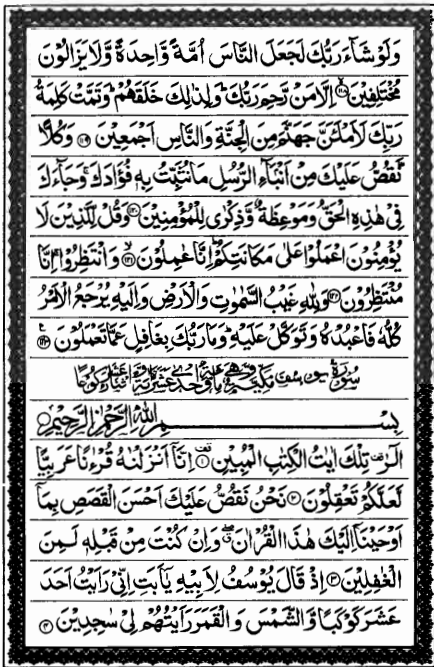 وَلَوْ شَآءَ رَبُّكَ لَجَعَلَ النَّاسَ اُمَّةً وَّاحِدَةً وَّلَا يَزَالُوْنَ
مُخْتَلِفِيْنَ ﴿۱۱۸﴾ اِلَّا مَنْ رَّحِمَ رَبُّكَ ؕ وَلِذٰلِكَ خَلَقَهُمْ ؕ وَتَمَّتْ كَلِمَةُ
رَبِّكَ لَاَمْلَئَنَّ جَهَنَّمَ مِنَ الْجِنَّةِ وَالنَّاسِ اَجْمَعِيْنَ ﴿۱۱۹﴾ وَكُلًّا
نَّقُصُّ عَلَيْكَ مِنْ اَنْۢبَآءِ الرُّسُلِ مَا نُثَبِّتُ بِهٖ فُؤَادَكَ ۚ وَجَآءَكَ
فِيْ هٰذِهِ الْحَقُّ وَمَوْعِظَةٌ وَّذِكْرٰى لِلْمُؤْمِنِيْنَ ﴿۱۲۰﴾ وَقُلْ لِّلَّذِيْنَ لَا
يُؤْمِنُوْنَ اعْمَلُوْا عَلٰى مَكَانَتِكُمْ ؕ اِنَّا عٰمِلُوْنَ ﴿۱۲۱﴾ وَانْتَظِرُوْا ۚ اِنَّا
مُنْتَظِرُوْنَ ﴿۱۲۲﴾ وَلِلّٰهِ غَيْبُ السَّمٰوٰتِ وَالْاَرْضِ وَاِلَيْهِ يُرْجَعُ الْاَمْرُ
كُلُّهٗ فَاعْبُدْهُ وَتَوَكَّلْ عَلَيْهِ ؕ وَمَا رَبُّكَ بِغَافِلٍ عَمَّا تَعْمَلُوْنَ ﴿۱۲۳﴾
سُوْرَةُ
بِسْمِ اللّٰهِ الرَّحْمٰنِ الرَّحِيْمِ
الٓرٰ ۟ تِلْكَ اٰيٰتُ الْكِتٰبِ الْمُبِيْنِ ﴿۱﴾ اِنَّاۤ اَنْزَلْنٰهُ قُرْءٰنًا عَرَبِيًّا
لَّعَلَّكُمْ تَعْقِلُوْنَ ﴿۲﴾ نَحْنُ نَقُصُّ عَلَيْكَ اَحْسَنَ الْقَصَصِ بِمَاۤ
اَوْحَيْنَاۤ اِلَيْكَ هٰذَا الْقُرْاٰنَ ۖ وَاِنْ كُنْتَ مِنْ قَبْلِهٖ لَمِنَ
الْغٰفِلِيْنَ ﴿۳﴾ اِذْ قَالَ يُوْسُفُ لِاَبِيْهِ يٰۤاَبَتِ اِنِّيْ رَاَيْتُ اَحَدَ
عَشَرَ كَوْكَبًا وَّالشَّمْسَ وَالْقَمَرَ رَاَيْتُهُمْ لِيْ سٰجِدِيْنَ ﴿۴﴾